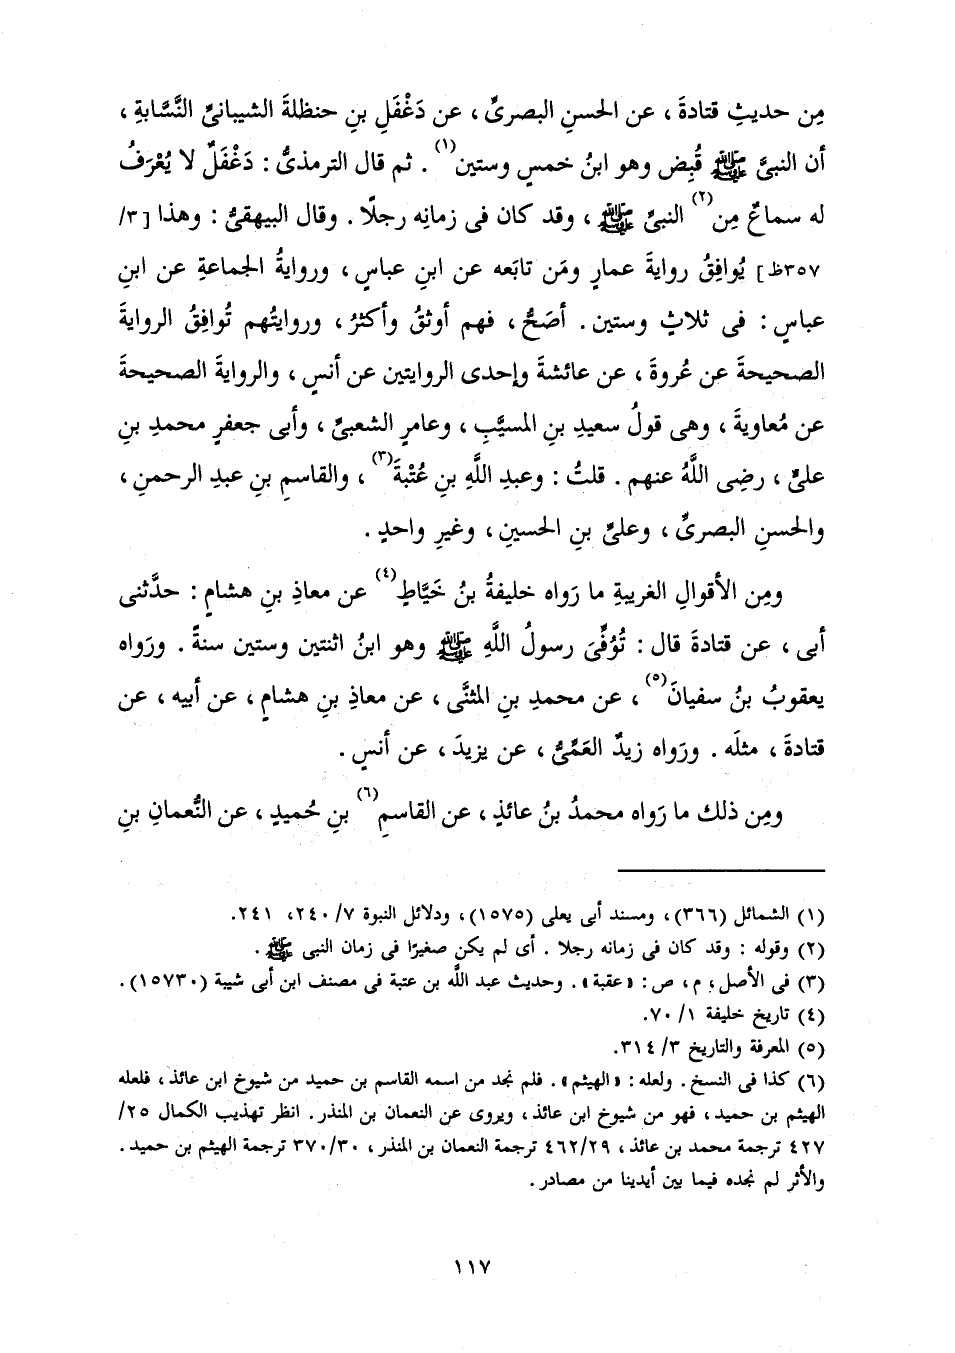 مِن حديثِ قتادةَ ، عن الحسنِ البصرىِّ ، عن دَغْفَلِ بنِ حنظلةَ الشيبانىِّ النَّسَّابةِ ،
أن النبىَّ ﷺ قُبِض وهو ابنُ خمسٍ وستين(١) . ثم قال الترمذىُّ : دَغْفَلٌ لا يُعْرَفُ
له سماعٌ مِن(٢) النبىِّ ﷺ ، وقد كان فى زمانِه رجلًا . وقال البيهقىُّ : وهذا [٣/
٣٥٧ظ] يُوافِقُ روايةَ عمارٍ ومَن تابَعه عن ابنِ عباسٍ ، وروايةُ الجماعةِ عن ابنِ
عباسٍ : فى ثلاثٍ وستين . أصَحُّ ، فهم أوثقُ وأكثرُ ، وروايتُهم تُوافِقُ الروايةَ
الصحيحةَ عن عُروةَ ، عن عائشةَ وإحدى الروايتين عن أنسٍ ، والروايةَ الصحيحةَ
عن مُعاويةَ ، وهى قولُ سعيدِ بنِ المسيَّبِ ، وعامرٍ الشعبىِّ ، وأبى جعفرٍ محمدِ بنِ
علىٍّ ، رضِى اللَّهُ عنهم . قلتُ : وعبدِ اللَّهِ بنِ عُتْبةَ(٣) ، والقاسمِ بنِ عبدِ الرحمنِ ،
والحسنِ البصرىِّ ، وعلىِّ بنِ الحسينِ ، وغيرِ واحدٍ .
ومِن الأقوالِ الغريبةِ ما رَواه خليفةُ بنُ خَيَّاطٍ(٤) عن معاذِ بنِ هشامٍ : حدَّثنى
أبى ، عن قتادةَ قال : تُوُفِّىَ رسولُ اللَّهِ ﷺ وهو ابنُ اثنتين وستين سنةً . ورَواه
يعقوبُ بنُ سفيانَ(٥) ، عن محمدِ بنِ المثنَّى ، عن معاذِ بنِ هشامٍ ، عن أبيه ، عن
قتادةَ ، مثلَه . ورَواه زيدٌ العَمِّىُّ ، عن يزيدَ ، عن أنسٍ .
ومِن ذلك ما رَواه محمدُ بنُ عائذٍ ، عن القاسمِ(٦) بنِ حُميدٍ ، عن النُّعمانِ بنِ
(١) الشمائل (٣٦٦) ، ومسند أبى يعلى (١٥٧٥) ، ودلائل النبوة ٧/ ٢٤٠، ٢٤١.
(٢) وقوله : وقد كان فى زمانه رجلا . أى لم يكن صغيرًا فى زمان النبى ﷺ .
(٣) فى الأصل ، م ، ص : « عقبة » . وحديث عبد اللَّه بن عتبة فى مصنف ابن أبى شيبة (١٥٧٣٠) .
(٤) تاريخ خليفة ١/ ٧٠.
(٥) المعرفة والتاريخ ٣/ ٣١٤.
(٦) كذا فى النسخ . ولعله : « الهيثم » . فلم نجد من اسمه القاسم بن حميد من شيوخ ابن عائذ ، فلعله
الهيثم بن حميد ، فهو من شيوخ ابن عائذ ، ويروى عن النعمان بن المنذر . انظر تهذيب الكمال ٢٥/
٤٢٧ ترجمة محمد بن عائذ ، ٤٦٢/٢٩ ترجمة النعمان بن المنذر ، ٣٧٠/٣٠ ترجمة الهيثم بن حميد .
والأثر لم نجده فيما بين أيدينا من مصادر .
١١٧